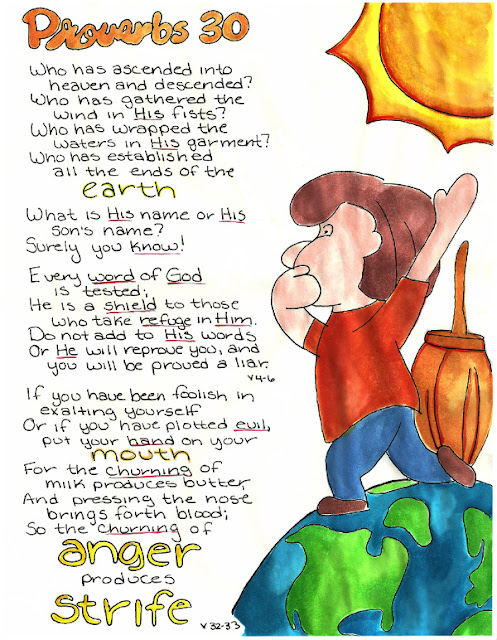 Proverbs 30
Who has ascended into
heaven and descended?
Who has gathered the
wind in His fists?
Who has wrapped the
waters in His garment?
Who has established
all the ends of the
earth
What is His name or His
son's name?
Surely you know!
Every word of God
is tested;
He is a shield to those
who take refuge in Him.
Do not add to His words
Or He will reprove you, and
you will be proved a liar.
v 4-6
If you have been foolish in
exalting yourself
Or if you have plotted evil,
put your hand on your
mouth
For the churning of
milk produces butter
And pressing the nose
brings forth blood;
So the churning of
anger
produces
strife
v 32-33